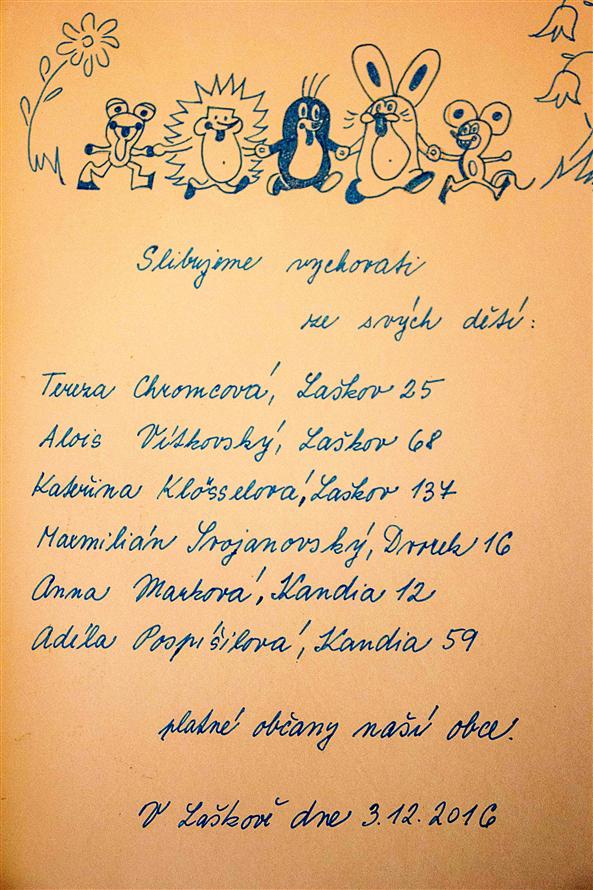 Slibujeme vychovati
ze svých dětí:
Tereza Chromcová, Laškov 25
Alois Vítkovský, Laškov 68
Kateřina Klösselová, Laškov 137
Maxmilián Trojanovský, Dvorek 16
Anna Marková, Kandia 12
Adéla Pospíšilová, Kandia 59
platné občany naší obce.
V Laškově dne 3.12.2016